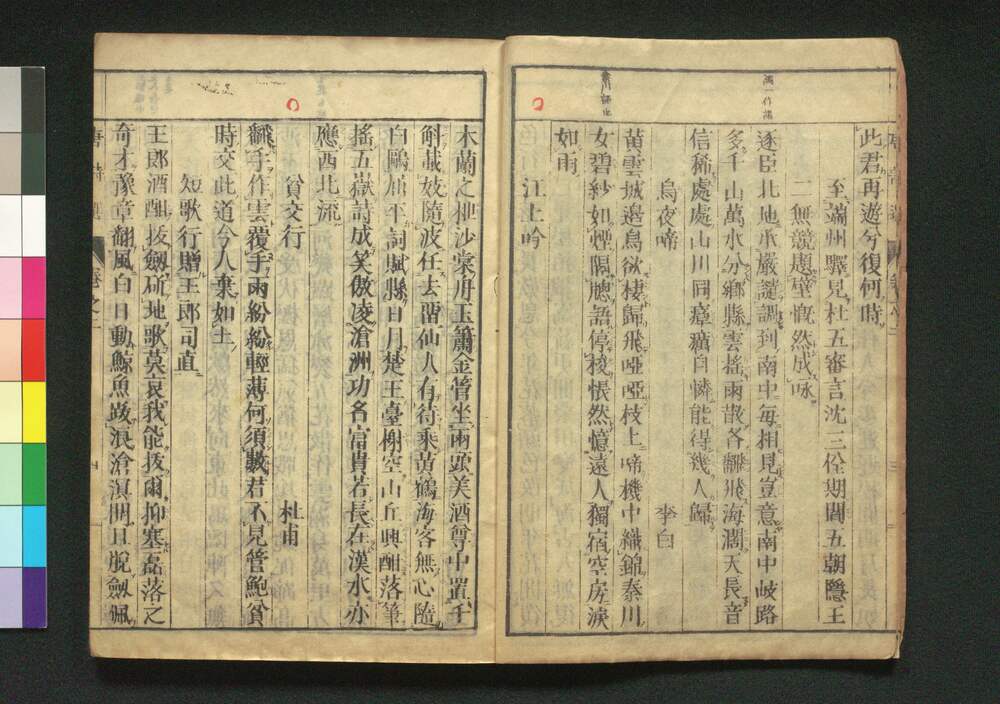 此君再遊兮復何時
至端州驛見杜五審言沈三佺期閻五朝隱王
二無競題壁慨然成咏
逐臣北地承嚴譴調到南中每相見豈意南中岐路
多千山萬水分鄉縣雲搖雨散各翻飛海濶天長音
信稀處處山川同瘴癘自憐能得幾人歸
烏夜啼 李白
黃雲城邊烏欲棲歸飛啞啞枝上啼機中織錦秦川
女碧紗如煙隔牕語停梭悵然憶遠人獨宿空房淚
如雨
江上吟
木蘭之枻沙棠舟玉簫金管坐兩頭美酒尊中置千
斛載妓隨波任去留仙人有待乘黃鶴海客無心隨
白鷗屈平詞賦縣日月楚王臺榭空山丘興酣落筆
搖五嶽詩成笑傲凌滄洲功名富貴若長在漢水亦
應西北流
貧交行 杜甫
飜手作雲覆手雨紛紛輕薄何須數君不見管鮑貧
時交此道今人棄如土
短歌行贈王郎司直
王郎酒酣拔劔斫地歌莫哀我能拔爾抑塞磊落之
奇才豫章翻風白日動鯨魚跋浪滄溟開且脫劔佩
唐詩選 卷之二